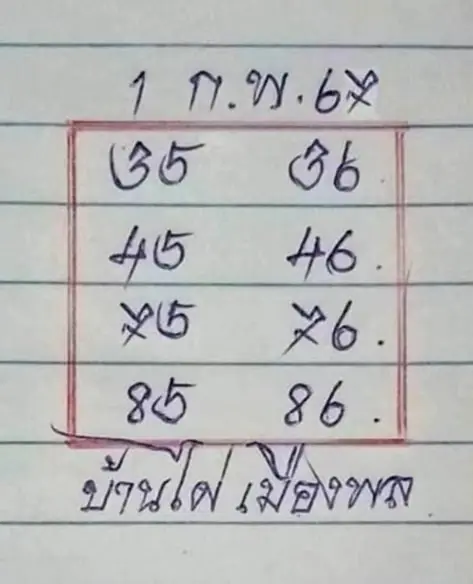 1 ก.พ.67
35 36.
45 46.
75 76.
85 86.
บ้านไผ่ เมืองพล